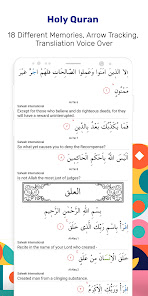 Holy Quran
18 Different Memories, Arrow Tracking,
Translation Voice Over
إلا الذين آمنوا وعملوا الصالحات فلهم أجر غير
ممنون
Saheeh International
Except for those who believe and do righteous deeds, for they
will have a reward uninterrupted.
فما يكذبك بعد بالدين
Saheeh International
So what yet causes you to deny the Recompense?
أليس الله بأحكم الحاكمين
Saheeh International
Is not Allah the most just of judges?
العلق
بسم الله الرحمن الرحيم
اقرأ باسم ربك الذي خلق
Saheeh International
Recite in the name of your Lord who created -
خلق الإنسان من علق
Saheeh International
Created man from a clinging substance.
اقرأ وربك الأكرم